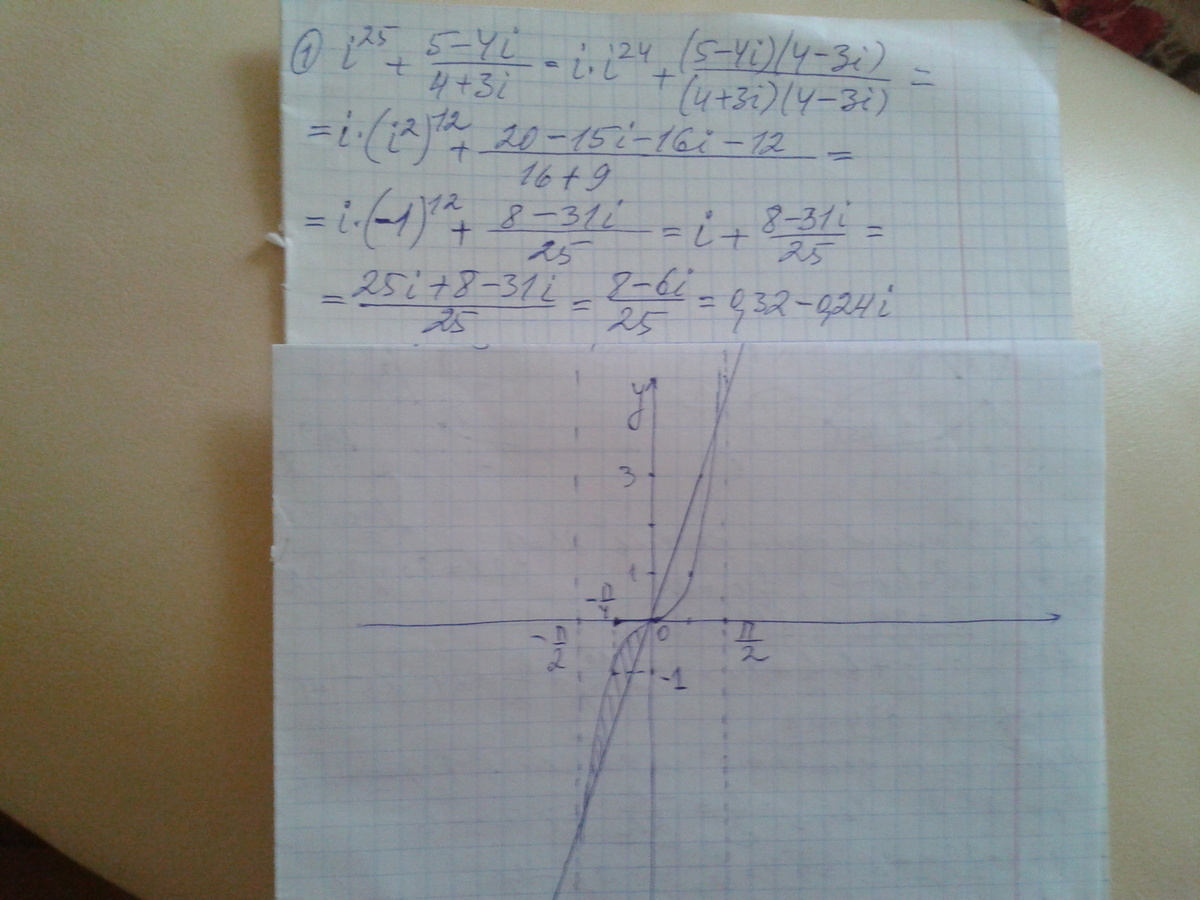 ① i^25 + (5-4i)/(4+3i) = i·i^24 + ((5-4i)(4-3i))/((4+3i)(4-3i)) =
= i·(i^2)^12 + (20-15i-16i-12)/(16+9) =
= i·(-1)^12 + (8-31i)/25 = i + (8-31i)/25 =
= (25i+8-31i)/25 = (8-6i)/25 = 0,32-0,24i
y
3
1
-π/4
-π/2 0 π/2
-1